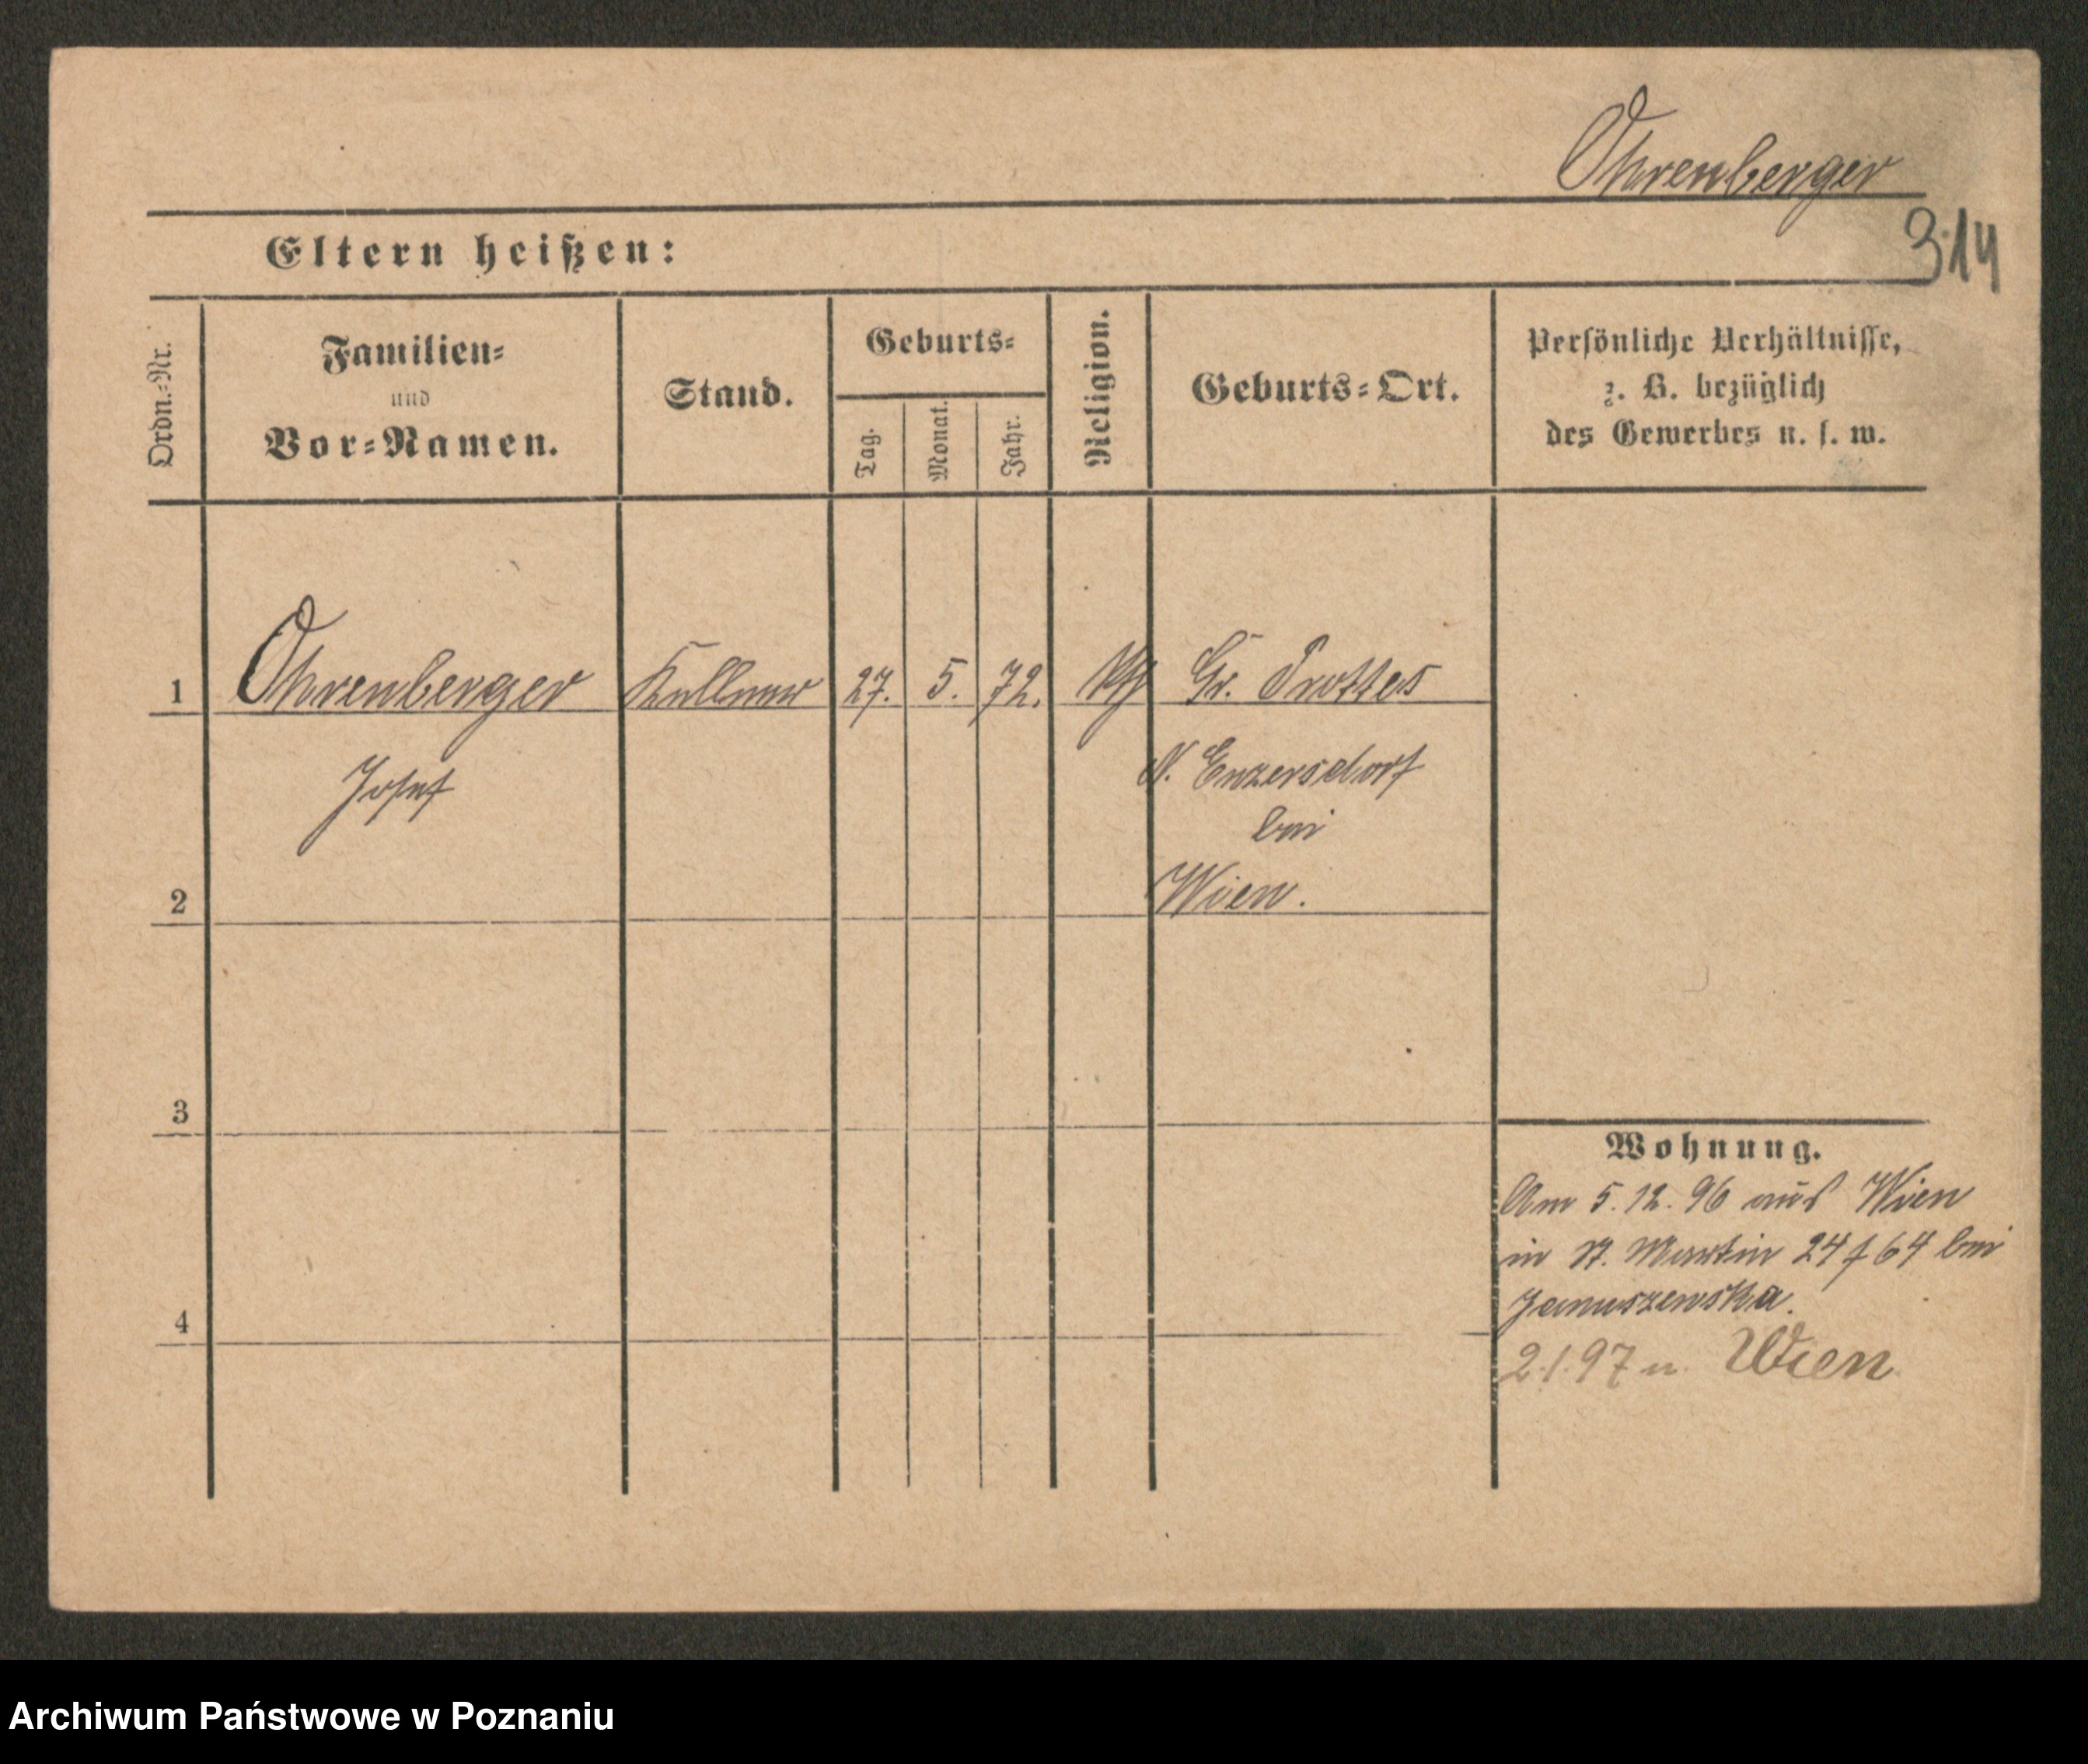 Ohrenberger
314
Eltern heißen:
Ordn.=Nr.
Familien=
und
Vor=Namen.
Stand.
Geburts=
Tag.
Monat.
Jahr.
Religion.
Geburts=Ort.
Persönliche Verhältnisse,
z. B. bezüglich
des Gewerbes u. s. w.
1 Ohrenberger Kellner 27. 5. 72. Gr. Prottes
Josef N. Enzersdorf
bei
2 Wien.
3
4
Wohnung.
Am 5.12.96 aus Wien
in St. Martin 24 f 64 bei
Januszewska.
2.1.97 n. Wien
Archiwum Państwowe w Poznaniu